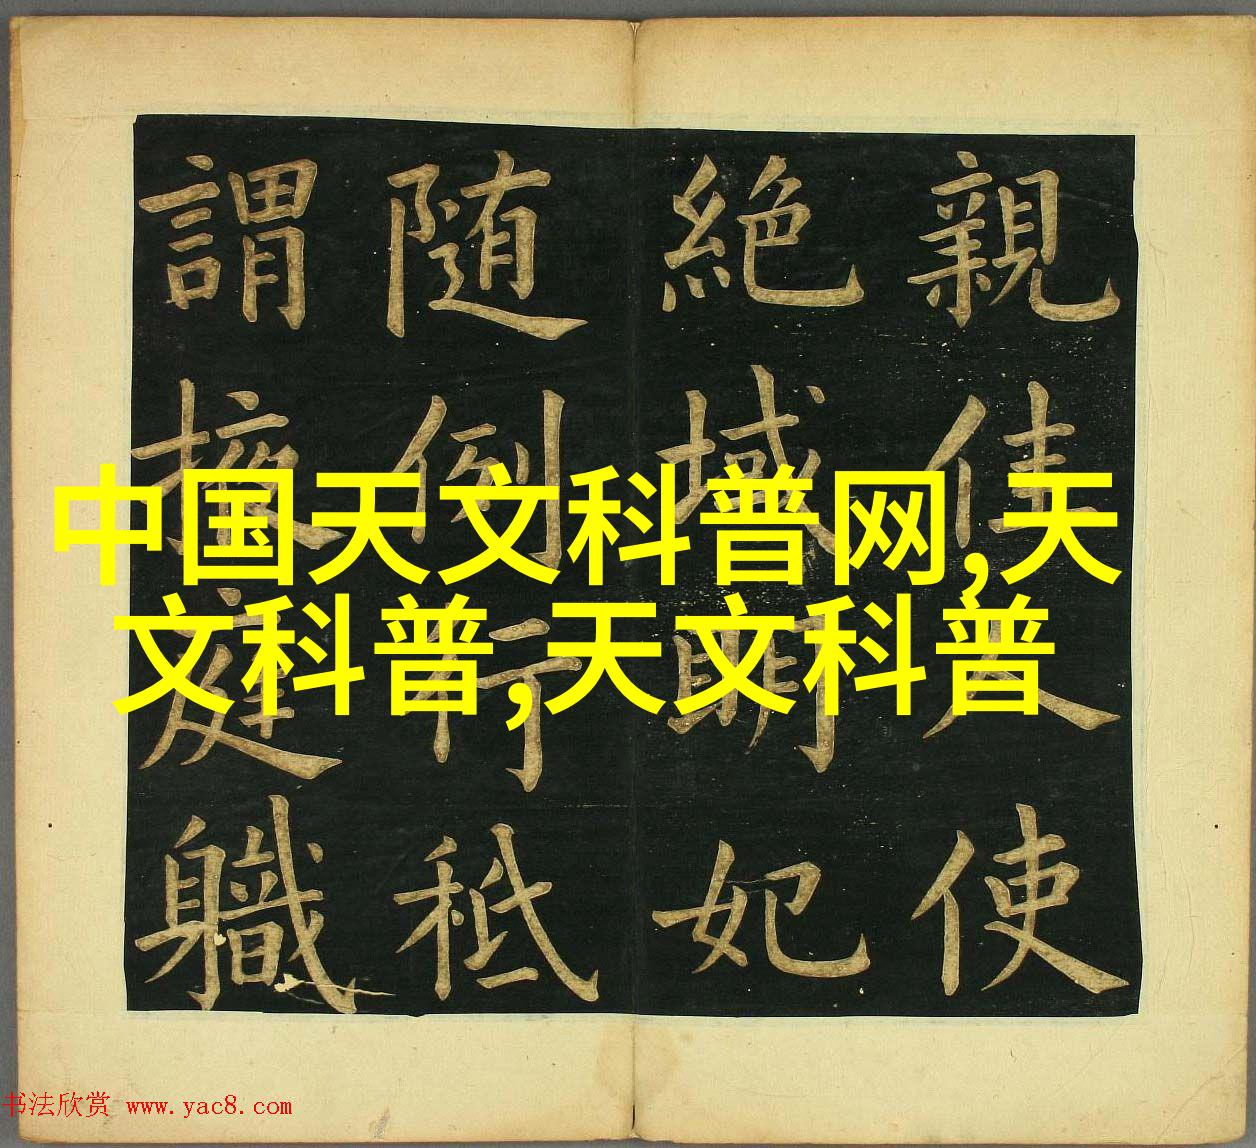 親佳人使
絶域明妃
随例行秖
謂掖庭職
中国天文科普网,天
文科普,天文科普
书法欣赏 www.yac8.com